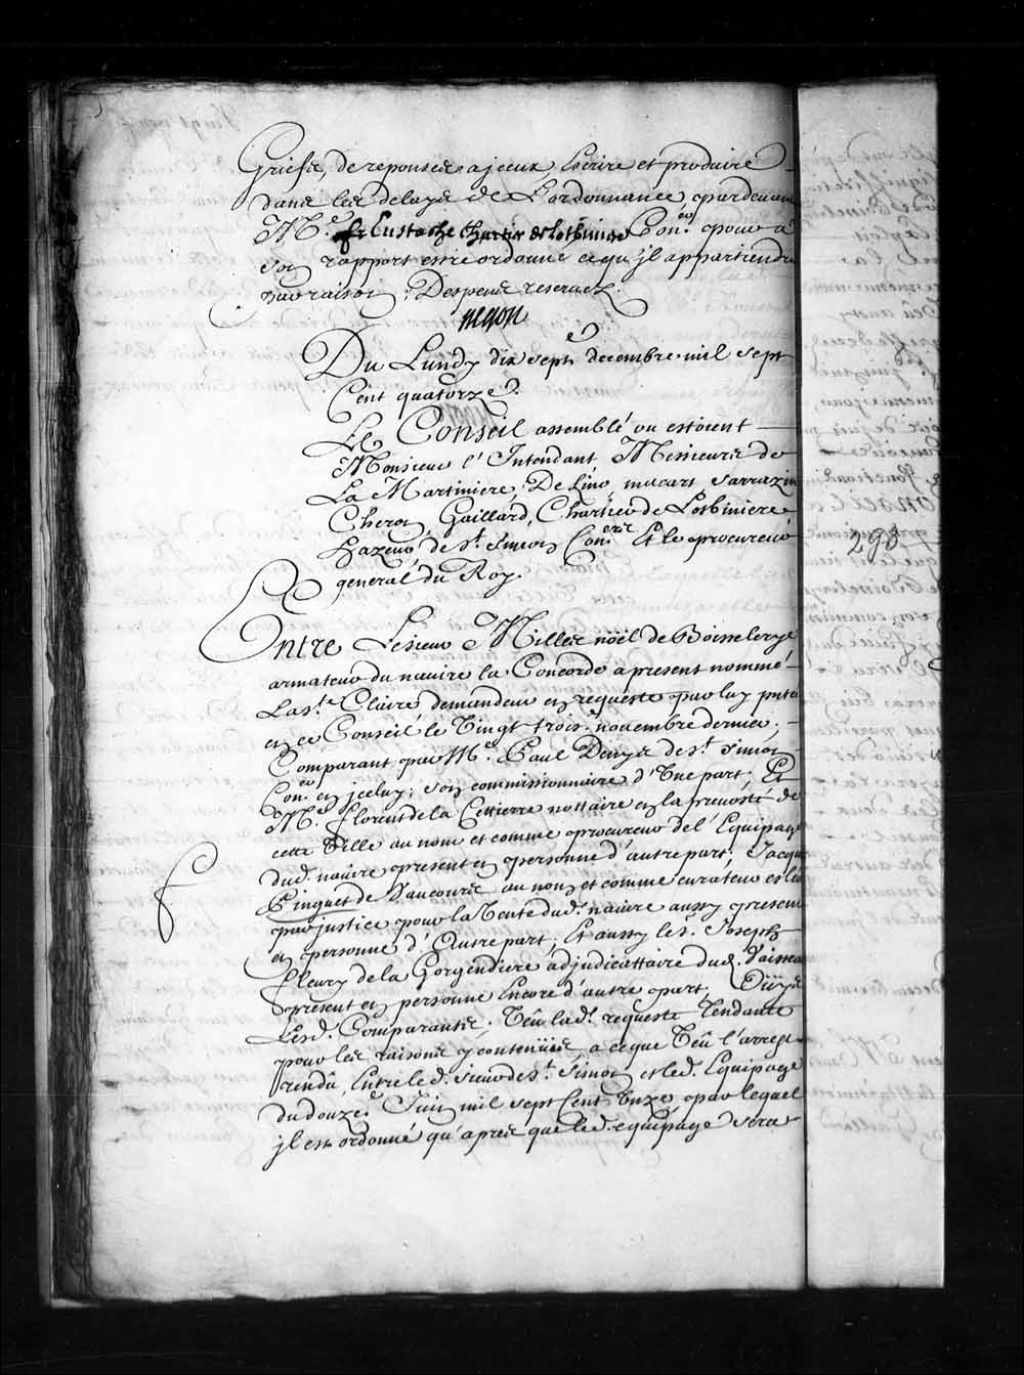 Griefs, de reponses a jceux, Escrire et produire
dans les delays de L'ordonnance pardevant
Me. Eustache Chartier de lotbiniere Coner. pour a
son rapport estre ordonné ce qu'jl appartiendra
par raison, Despens reservez.
Begon
Du Lundy dix sept.e decembre mil sept
Cent quatorze.
Le Conseil assemblé ou estoient
Monsieur l'Intendant Messieurs de
La Martiniere, De Lino, macart Sarrazin
Cheron, Gaillard, Chartier de Lotbiniere
hazeur de St. Simon Coners. Et le procureur
general du Roy.
293
Entre Le sieur Milles nöel de Boisclerye
armateur du navire la Concorde apresent nommé
La Ste. Claire demandeur en requeste par luy pnteé
en ce Conseil le Vingt trois.e novembre dernier,
Comparant par Me. Paul Denys de St. Simon
Coner. en jceluy, son commissionnaire d'Vne part. Et
Me. florent de la Cettierre nottaire en la prevosté de
cette Ville au nom et comme procureur de l'Equipage
dud. navire present en personne d'autre part; Jacques
Pinguet de Vaucours au nom et comme curateur esleu
par justice pour la Vente dud. navire aussy present
en personne d'Autre part, Et aussy le s. Joseph
fleury de la Gorgendiere adjudicattaire dud. Vaisseau
present en personne Encore d'autre part, Oüys
Lesd. Comparants; Veû lad. requeste Tendante
pour les raisons y contenües a ce que Veû l'arrest
rendû Entre led. sieur de St. Simon et led. Equipage
du douze.e Juin mil sept Cent Vnze par lequel
jl est ordonné qu'apres que led. equipage sera